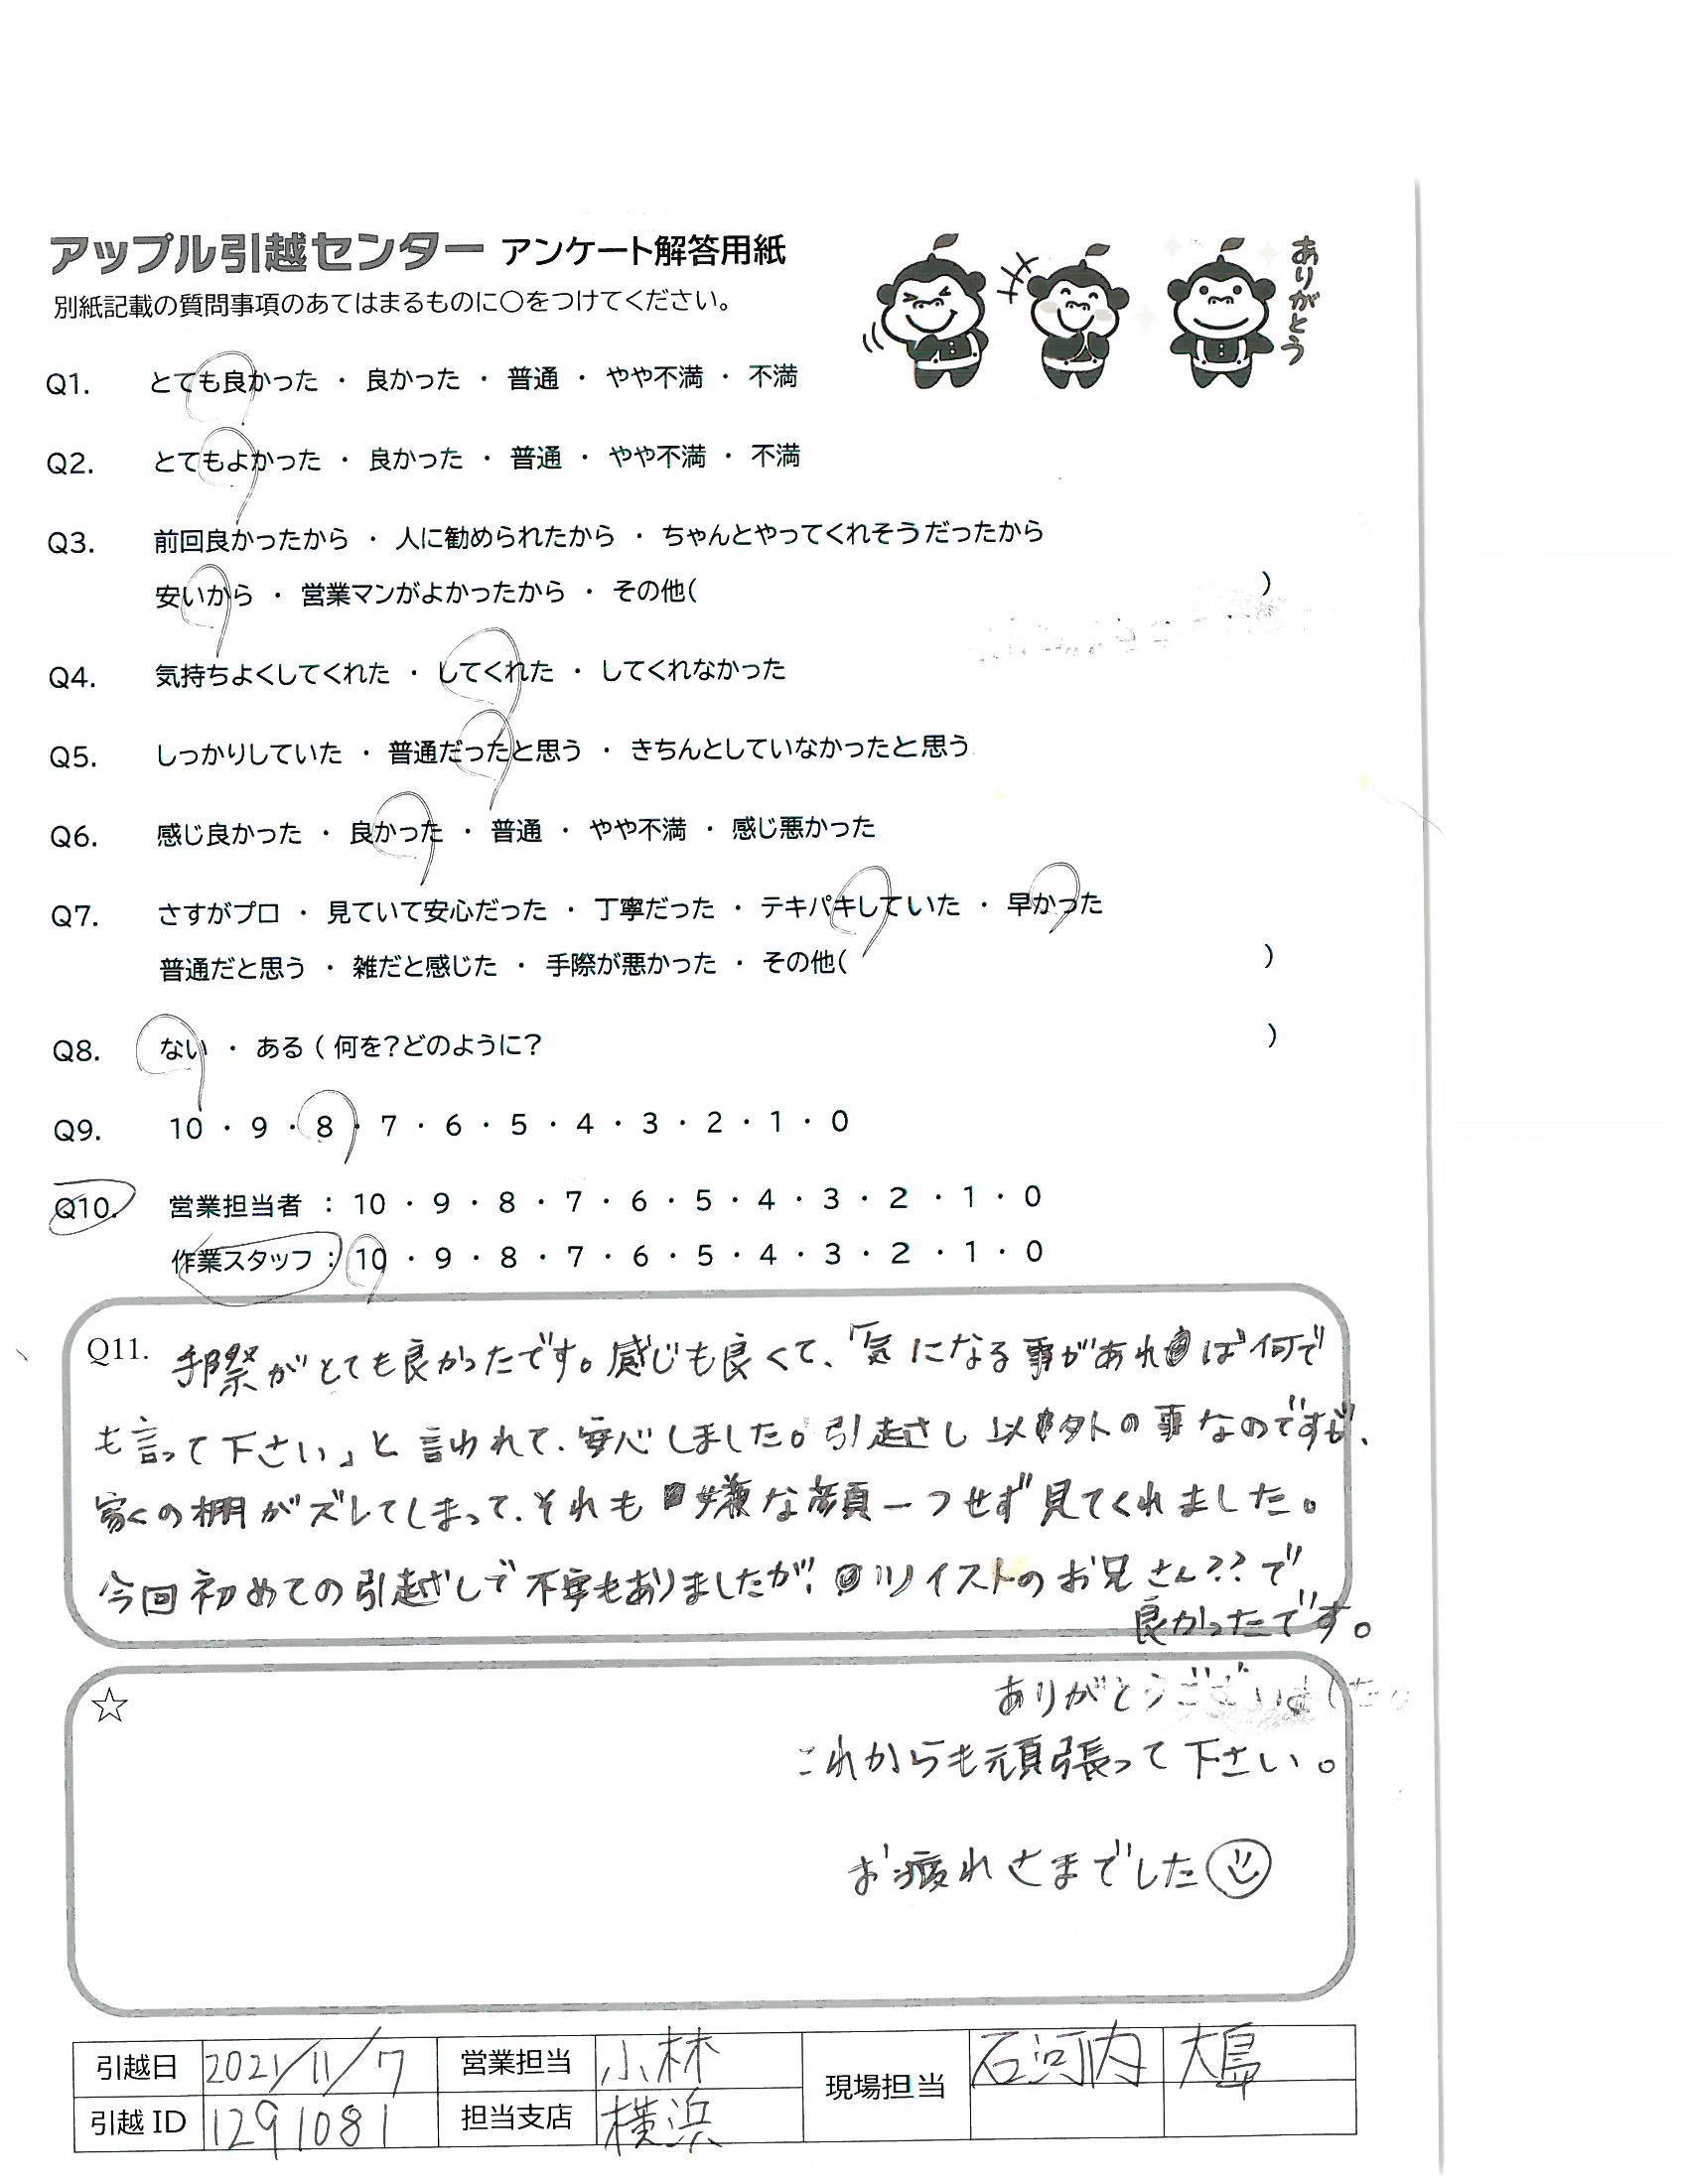 アップル引越センター アンケート解答用紙
ありがとう
別紙記載の質問事項のあてはまるものに〇をつけてください。
Q1. とても良かった ・ 良かった ・ 普通 ・ やや不満 ・ 不満
Q2. とてもよかった ・ 良かった ・ 普通 ・ やや不満 ・ 不満
Q3. 前回良かったから ・ 人に勧められたから ・ ちゃんとやってくれそうだったから
安いから ・ 営業マンがよかったから ・ その他( )
Q4. 気持ちよくしてくれた ・ してくれた ・ してくれなかった
Q5. しっかりしていた ・ 普通だったと思う ・ きちんとしていなかったと思う
Q6. 感じ良かった ・ 良かった ・ 普通 ・ やや不満 ・ 感じ悪かった
Q7. さすがプロ ・ 見ていて安心だった ・ 丁寧だった ・ テキパキしていた ・ 早かった
普通だと思う ・ 雑だと感じた ・ 手際が悪かった ・ その他( )
Q8. ない ・ ある ( 何を?どのように? )
Q9. 10 ・ 9 ・ 8 ・ 7 ・ 6 ・ 5 ・ 4 ・ 3 ・ 2 ・ 1 ・ 0
Q10. 営業担当者 : 10 ・ 9 ・ 8 ・ 7 ・ 6 ・ 5 ・ 4 ・ 3 ・ 2 ・ 1 ・ 0
作業スタッフ : 10 ・ 9 ・ 8 ・ 7 ・ 6 ・ 5 ・ 4 ・ 3 ・ 2 ・ 1 ・ 0
Q11. 手際がとても良かったです。感じも良くて、「気になる事があれば何で
も言って下さい」と言われて、安心しました。引越さし以外の事なのですが、
家具の棚がズレてしまって、それも嫌な顔一つせず見てくれました。
今回初めての引越ざしで不安もありましたが、ツイストのお兄さん??で
良かったです。
☆ ありがとうございました。
これからも頑張って下さい。
お疲れさまでした
引越日 2021/11/7 営業担当 小林 現場担当 石河内 大島
引越 ID 1291081 担当支店 横浜